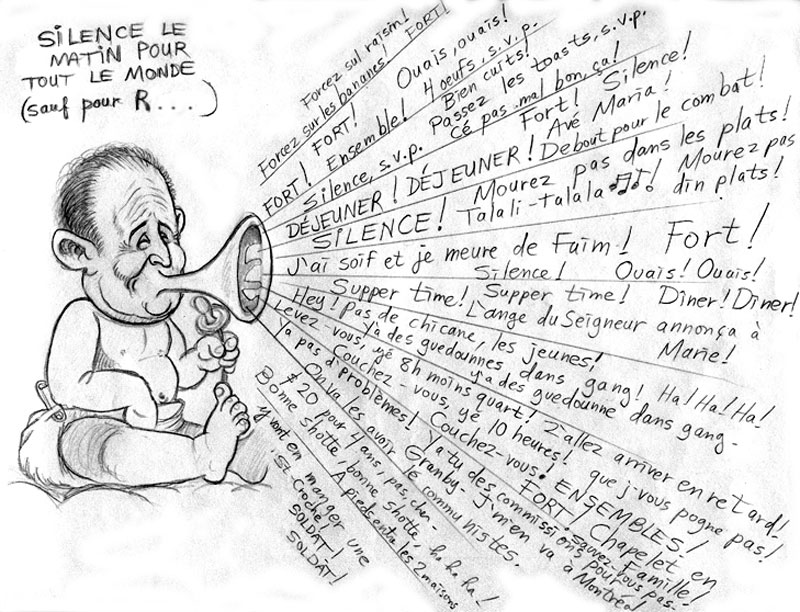 SILENCE LE
MATIN POUR
TOUT LE MONDE
(sauf pour R....)
Forcez sul raisin!
Forcez sur les bananes! FORT!
Ouais, ouais!
FORT! FORT! Ensemble! 4 oeufs, s.v.p.
Bien cuits!
Silence, s.v.p. Passez les toasts, s.v.p.
Cé pas mal bon, ça!
DÉJEUNER! DÉJEUNER! Fort! Silence!
Avé Maria!
SILENCE! Debout pour le combat!
Mourez pas dans les plats!
Talali-Talala ! Mourez pas
din plats!
J'ai soif et je meure de Faim! Fort!
Silence! Ouais! Ouais!
Supper time! Supper time! Diner! Diner!
L'ange du Seigneur annonça à
Marie!
Hey! Pas de chicane, les jeunes!
Y'a des guedounnes dans gang! Ha! Ha! Ha!
y'a des guedounne dans gang-
Levez-vous, yé 8h moins quart! Z'allez arriver en retard!
Couchez-vous, yé 10 heures! que j'vous pogne pas!
Ya pas d'problèmes! Couchez-vous! ENSEMBLES!
FORT! Chapelet en
Famille!
On va les avoir lé communistes.
Ya tu des commissions pour vous pas-
Granby- J'm'en va à Montréal!
$20 pour 4 ans, pas, cher-
Bonne shotte, bonne shotte, ha ha ha!
A pieds enta les 2 maisons
y vont en manger une
St. Croche!
SOLDAT!
SOLDAT!